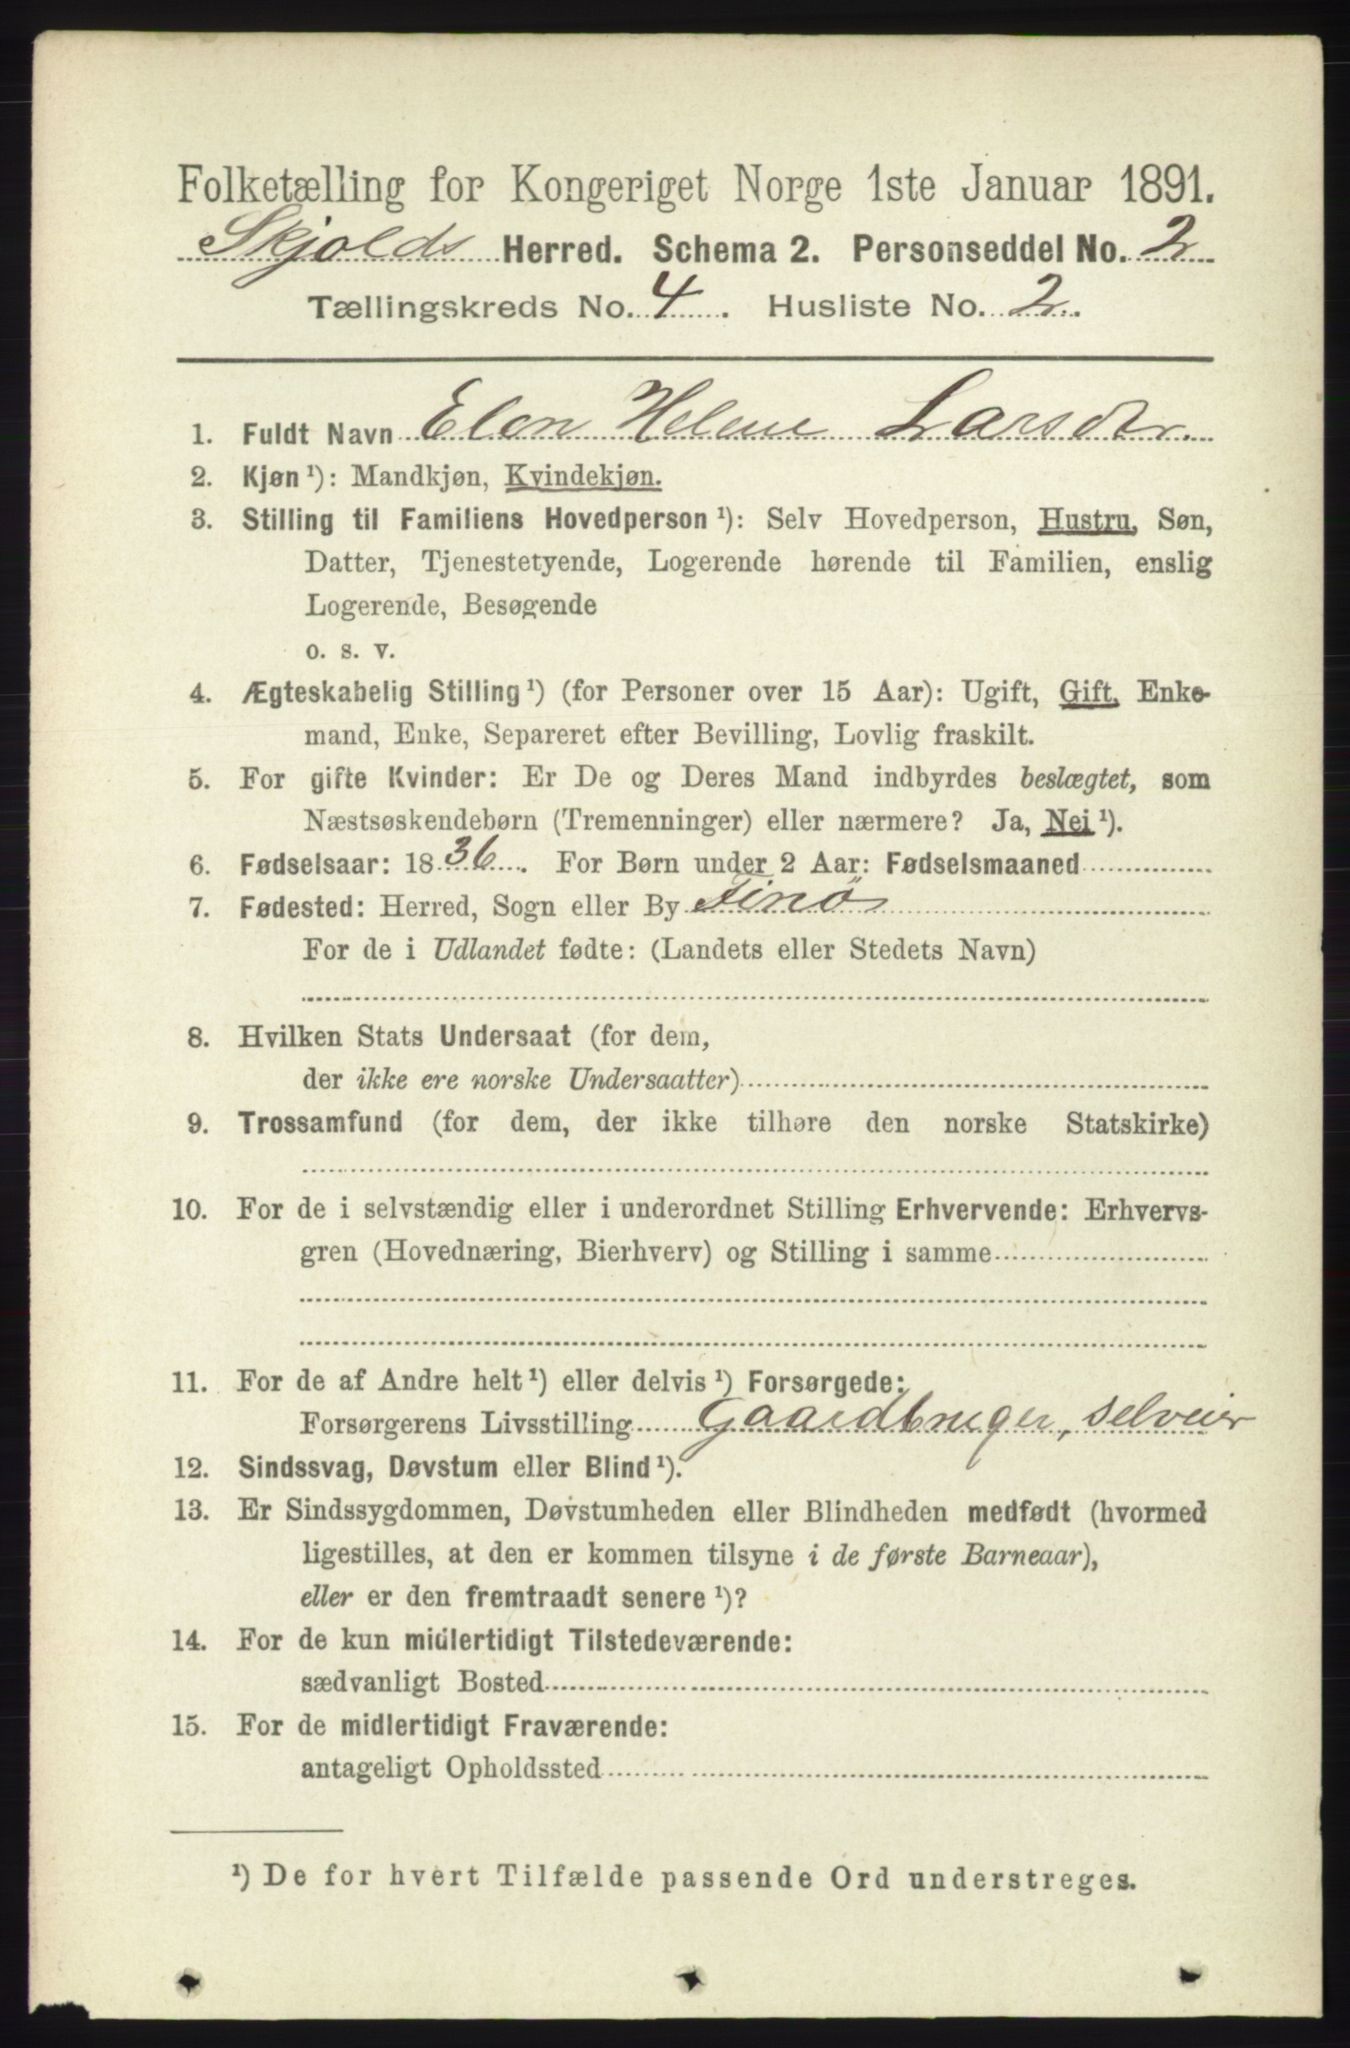 Folketælling for Kongeriget Norge 1ste Januar 1891.
Skjolds Herred. Schema 2. Personseddel No. 2
Tællingskreds No. 4. Husliste No. 2.
1. Fuldt Navn Elen Helene Larsdtr.
2. Kjøn ¹): Mandkjøn, Kvindekjøn.
3. Stilling til Familiens Hovedperson ¹): Selv Hovedperson, Hustru, Søn,
Datter, Tjenestetyende, Logerende hørende til Familien, enslig
Logerende, Besøgende
o. s. v.
4. Ægteskabelig Stilling ¹) (for Personer over 15 Aar): Ugift, Gift, Enke-
mand, Enke, Separeret efter Bevilling, Lovlig fraskilt.
5. For gifte Kvinder: Er De og Deres Mand indbyrdes beslægtet, som
Næstsøskendebørn (Tremenninger) eller nærmere? Ja, Nei ¹).
6. Fødselsaar: 1836. For Børn under 2 Aar: Fødselsmaaned
7. Fødested: Herred, Sogn eller By Finö
For de i Udlandet fødte: (Landets eller Stedets Navn)
8. Hvilken Stats Undersaat (for dem,
der ikke ere norske Undersaatter)
9. Trossamfund (for dem, der ikke tilhøre den norske Statskirke)
10. For de i selvstændig eller i underordnet Stilling Erhvervende: Erhvervs-
gren (Hovednæring, Bierhverv) og Stilling i samme
11. For de af Andre helt ¹) eller delvis ¹) Forsørgede:
Forsørgerens Livsstilling Gaardbruger, selveier
12. Sindssvag, Døvstum eller Blind ¹).
13. Er Sindssygdommen, Døvstumheden eller Blindheden medfødt (hvormed
ligestilles, at den er kommen tilsyne i de første Barneaar),
eller er den fremtraadt senere ¹)?
14. For de kun midlertidigt Tilstedeværende:
sædvanligt Bosted
15. For de midlertidigt Fraværende:
antageligt Opholdssted
¹) De for hvert Tilfælde passende Ord understreges.